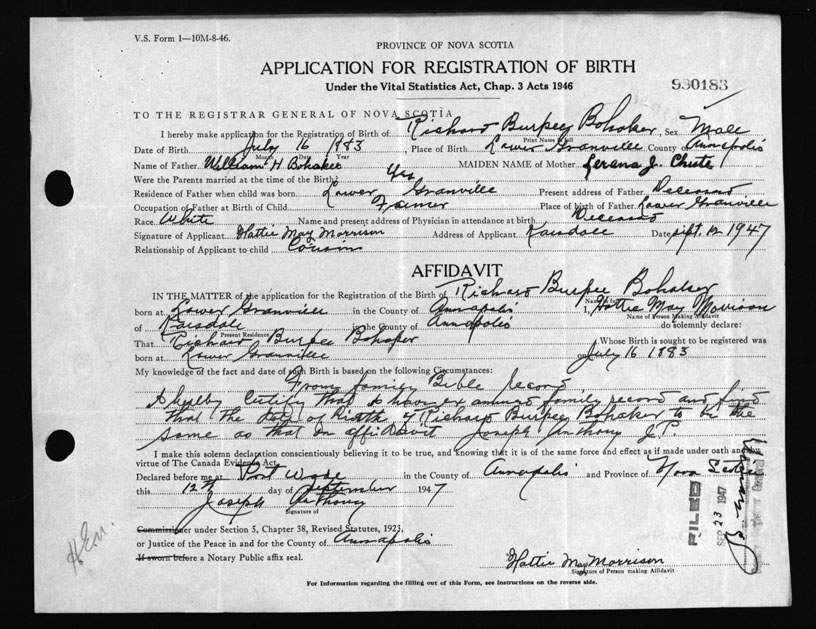 V.S. Form 1—10M-8-46.
PROVINCE OF NOVA SCOTIA
APPLICATION FOR REGISTRATION OF BIRTH
Under the Vital Statistics Act, Chap. 3 Acts 1946
930183
TO THE REGISTRAR GENERAL OF NOVA SCOTIA
I hereby make application for the Registration of Birth of Richard Burpey Bohaker, Sex Male
Print Name in full
Date of Birth July 16 1883, Place of Birth Lower Granville County of Annapolis
Month Date Year
Name of Father William H Bohaker MAIDEN NAME of Mother Lerana J. Chute
Were the Parents married at the time of the Birth? Yes
Residence of Father when child was born Lower Granville Present address of Father Deceased
Occupation of Father at Birth of Child Farmer Place of birth of Father Lower Granville
Race White Name and present address of Physician in attendance at birth Deceased
Signature of Applicant Hattie May Morrison Address of Applicant Karsdale Date Sept. 12 1947
Relationship of Applicant to child Cousin
AFFIDAVIT
IN THE MATTER of the application for the Registration of the Birth of Richard Burpee Bohaker
born at Lower Granville in the County of Annapolis I, Hattie May Morrison
Name of Person Making Affidavit
of Karsdale in the County of Annapolis do solemnly declare:
Present Residence
That Richard Burpee Bohaker Whose Birth is sought to be registered was
born at Lower Granville on July 16 1883
My knowledge of the fact and date of such Birth is based on the following Circumstances:
From family Bible record
I hereby Certify that I have examined family record and find
that the date of Birth of Richard Burpey Bohaker to be the
same as that on affidavit Joseph Anthony J.P.
I make this solemn declaration conscientiously believing it to be true, and knowing that it is of the same force and effect as if made under oath and
virtue of The Canada Evidence Act.
Declared before me at Port Wade in the County of Annapolis and Province of Nova Scotia
this 12th day of September 1947
Joseph Anthony
Signature of
Commissioner under Section 5, Chapter 38, Revised Statutes, 1923,
or Justice of the Peace in and for the County of Annapolis
If sworn before a Notary Public affix seal.
Hattie May Morrison
Signature of Person making Affidavit
FILED
SEP 23 1947
For Information regarding the filling out of this Form, see instructions on the reverse side.